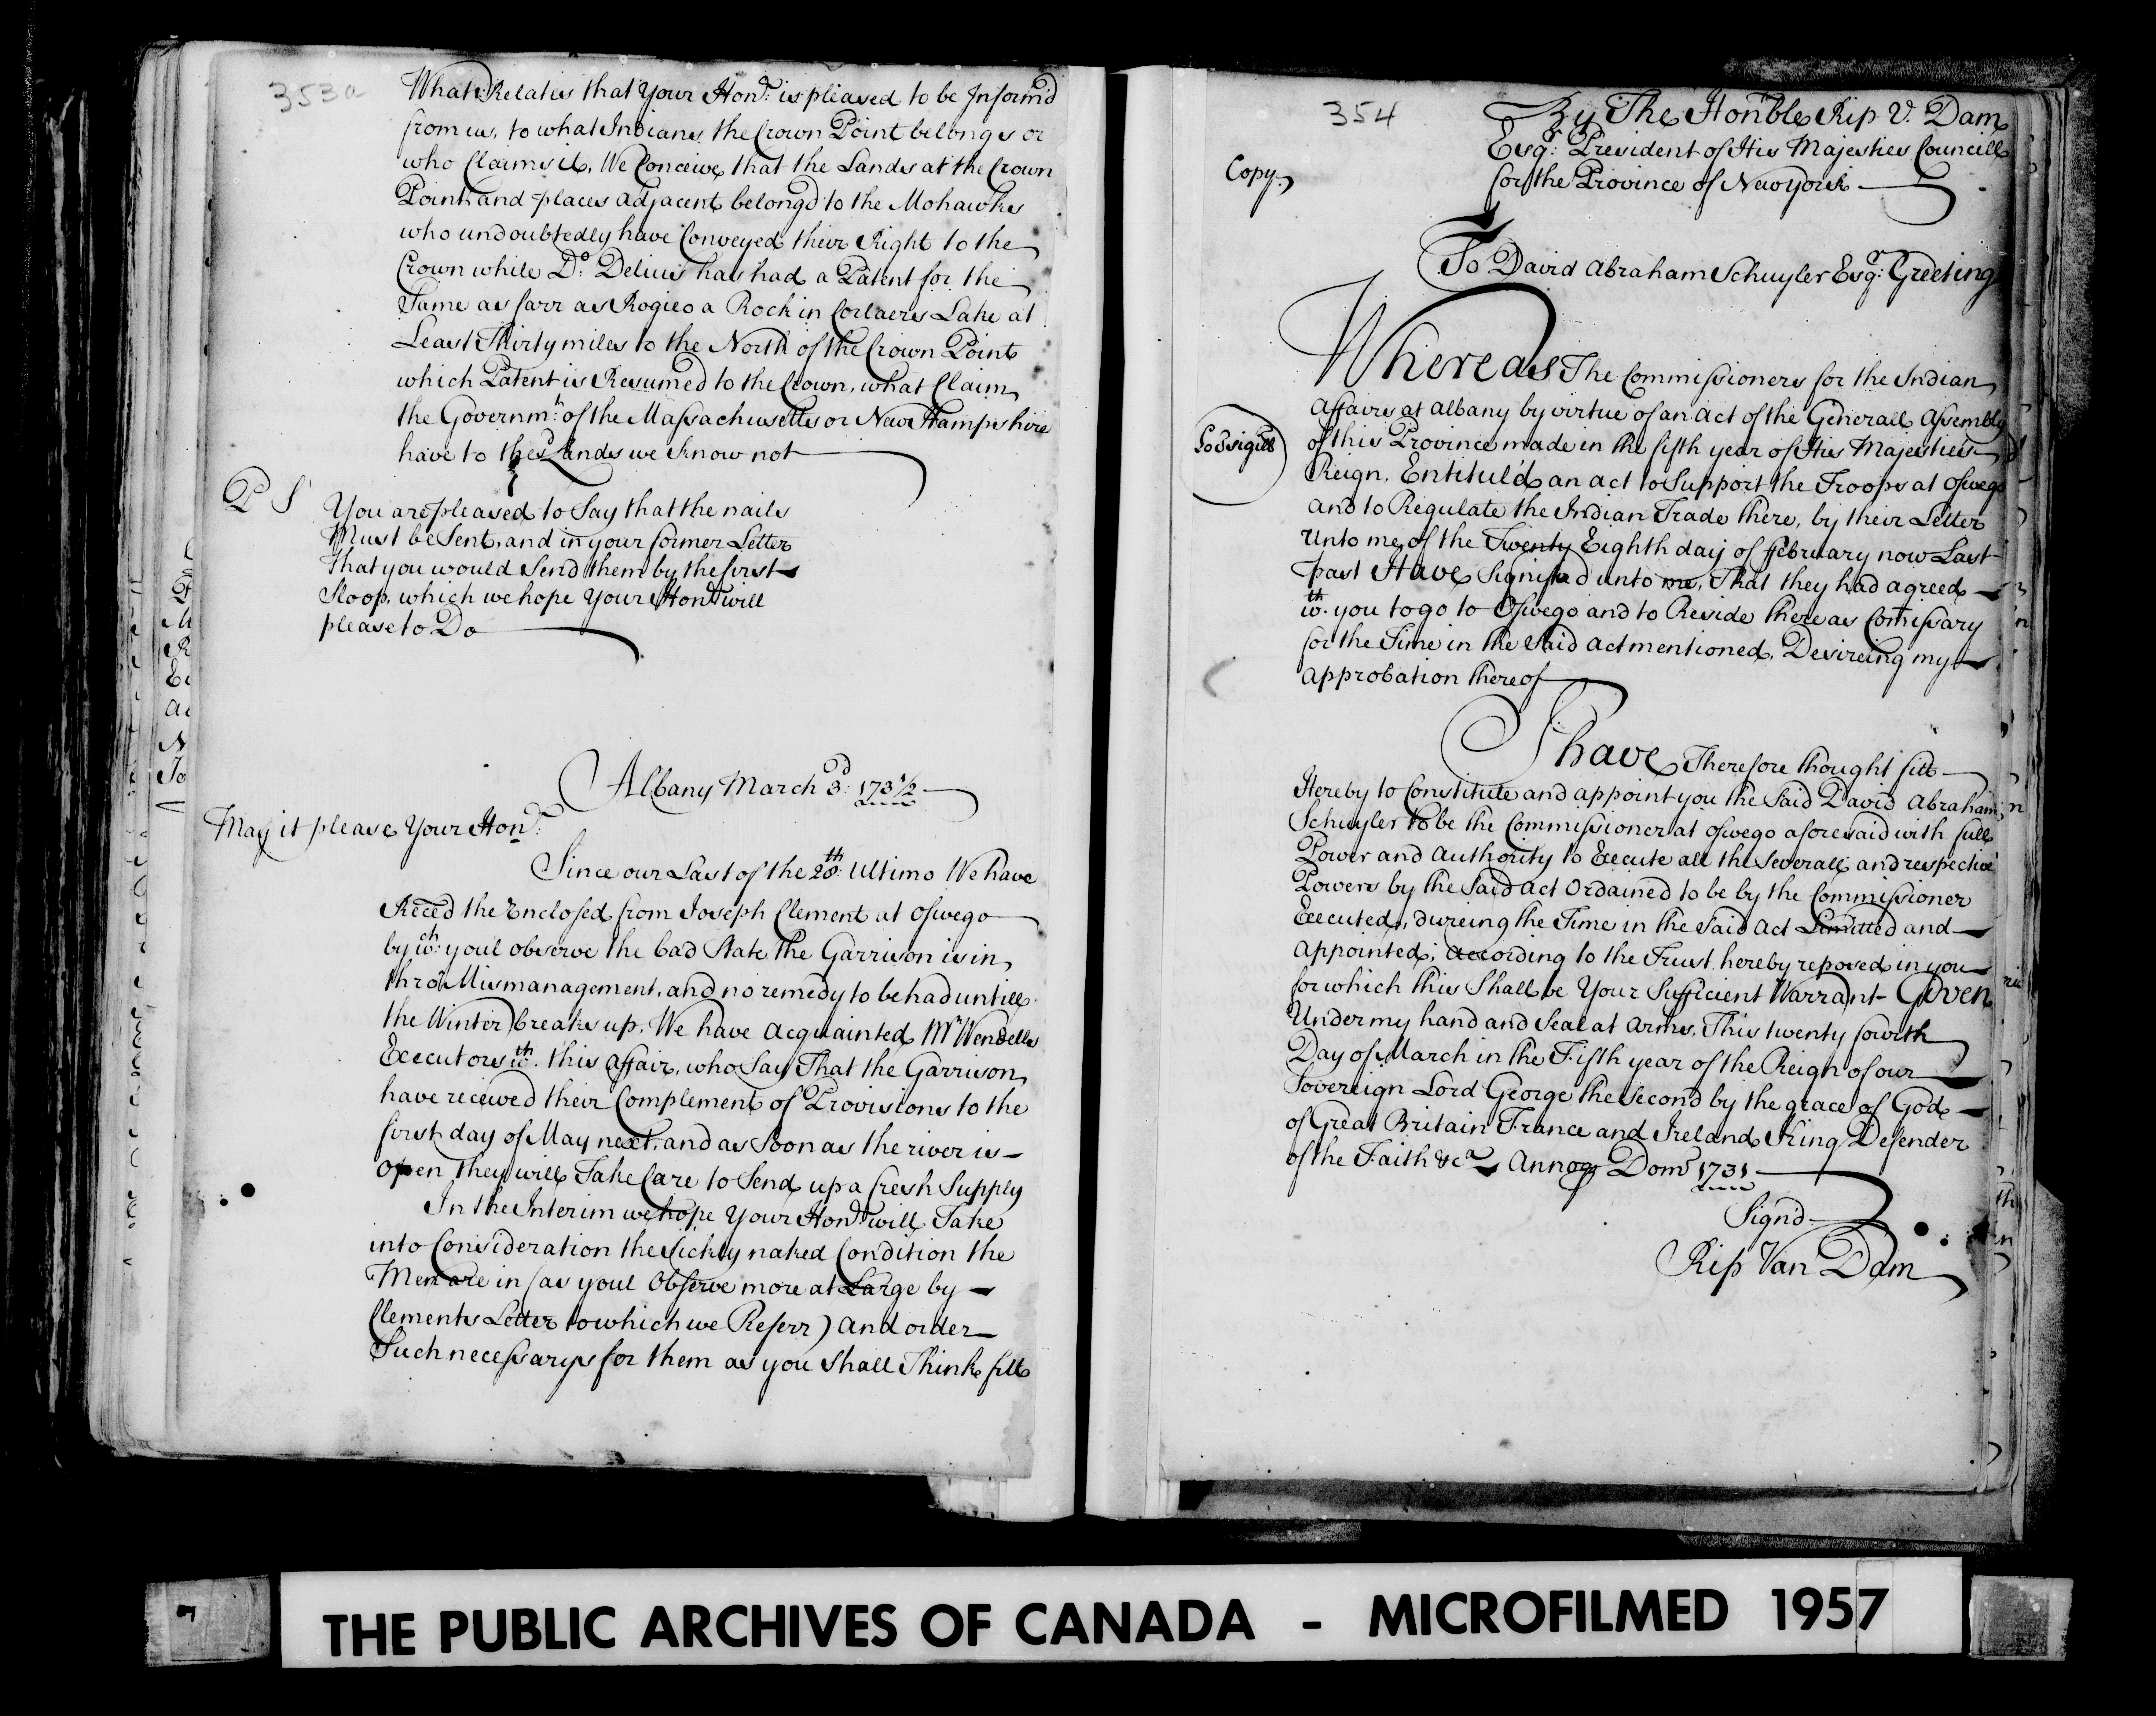 353a
What Relates that Your Honr. is pleased to be Informd
from us, to what Indians the Crown Point belongs or
who Claims it, We Conceive that the Lands at the Crown
Point and places adjacent belongd to the Mohawks
who undoubtedly have Conveyed their Right to the
Crown while Do. Delius has had a Patent for the
Same as farr as Rogieo a Rock in Corlaers Lake at
Least Thirty miles to the North of the Crown Point
which Patent is Resumed to the Crown, what Claim
the Governmt. of the Massachusetts or New Hampshire
have to the sd Lands we know not
P S
You are pleased to Say that the nails
Must be Sent, and in your former Letter
that you would Send them by the first
Sloop, which we hope Your Honr will
please to Do
Albany March 3d. 1731/2
May it please Your Honr.
Since our Last of the 28th. Ultimo We have
Receed the Enclosed from Joseph Clement at Oswego
by wch. youl observe the bad State the Garrison is in,
thro' Mismanagement, and no remedy to be had untill
the Winter breaks up, We have acquainted Mr Wendells
Executors wth. this affair, who Say That the Garrison
have received their Complement of Provisions to the
first day of May next, and as Soon as the river is
open they will Take Care to Send up a fresh Supply
In the Interim we hope Your Honr. will Take
into Consideration the Sickly naked Condition the
Men are in (as youl Observe more at Large by
Clements Letter to which we Referr) and order
Such necessarys for them as you Shall Think fitt
354
Copy
By The Honble Rip V. Dam
Esqr. President of His Majesties Councill
for the Province of New York
To David Abraham Schuyler Esqr. Greeting
Whereas The Commissioners for the Indian
Affairs at Albany by virtue of an act of the Generall Assembly
of this Province made in the fifth year of His Majesties
Reign, Entitul'd an act to Support the Troops at Oswego
and to Regulate the Indian Trade there, by their Letter
Unto me, of the Twenty Eighth day of ffebruary now Last
past Have Signifyed unto me, That they had agreed
wth. you to go to Oswego and to Reside there as Comissary
for the Time in the Said Act mentioned, Desireing my
approbation thereof
I have Therefore thought fitt
Hereby to Constitute and appoint you the Said David Abraham
Schuyler to be the Commissioner at Oswego aforesaid with full
Power and Authority to Execute all the Severall and respective
Powers by the Said Act Ordained to be by the Commissioner
Executed, dureing the Time in the Said Act Limitted and
appointed; according to the Trust hereby reposed in you
for which this Shall be Your Sufficient Warrant Given
Under my hand and Seal at Arms, This twenty fourth
Day of March in the Fifth year of the Reign of our
Sovereign Lord George the Second by the grace of God
of Great Britain France and Ireland King Defender
of the Faith &ca Annoq Domi 1731
Signd
Rip Van Dam
THE PUBLIC ARCHIVES OF CANADA - MICROFILMED 1957